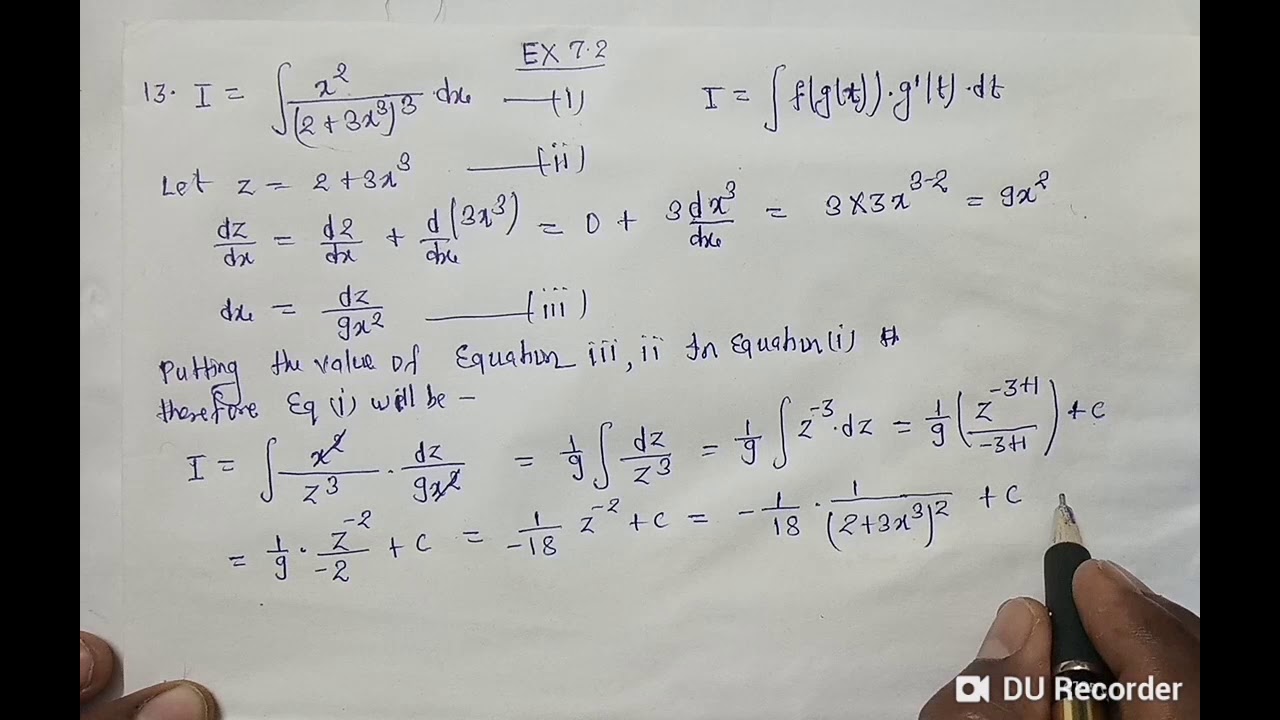 EX 7.2
13. I = ∫ x²/(2+3x³)³ · dx —(i) I = ∫ f(g(t)) · g'(t) · dt
Let z = 2+3x³ —(ii)
dz/dx = d2/dx + d(3x³)/dx = 0 + 3dx³/dx = 3×3x³⁻² = 9x²
dx = dz/9x² —(iii)
Putting the value of Equation iii, ii In Equation (i)
therefore Eq (i) will be –
I = ∫ x²/z³ · dz/9x² = 1/9 ∫ dz/z³ = 1/9 ∫ z⁻³ · dz = 1/9 (z⁻³⁺¹/-3+1) + c
= 1/9 · z⁻²/-2 + c = 1/-18 z⁻² + c = -1/18 · 1/(2+3x³)² + c
DU Recorder